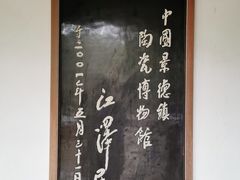 中國景德鎮
陶瓷博物館
江澤民
于二〇〇一年五月三十一日